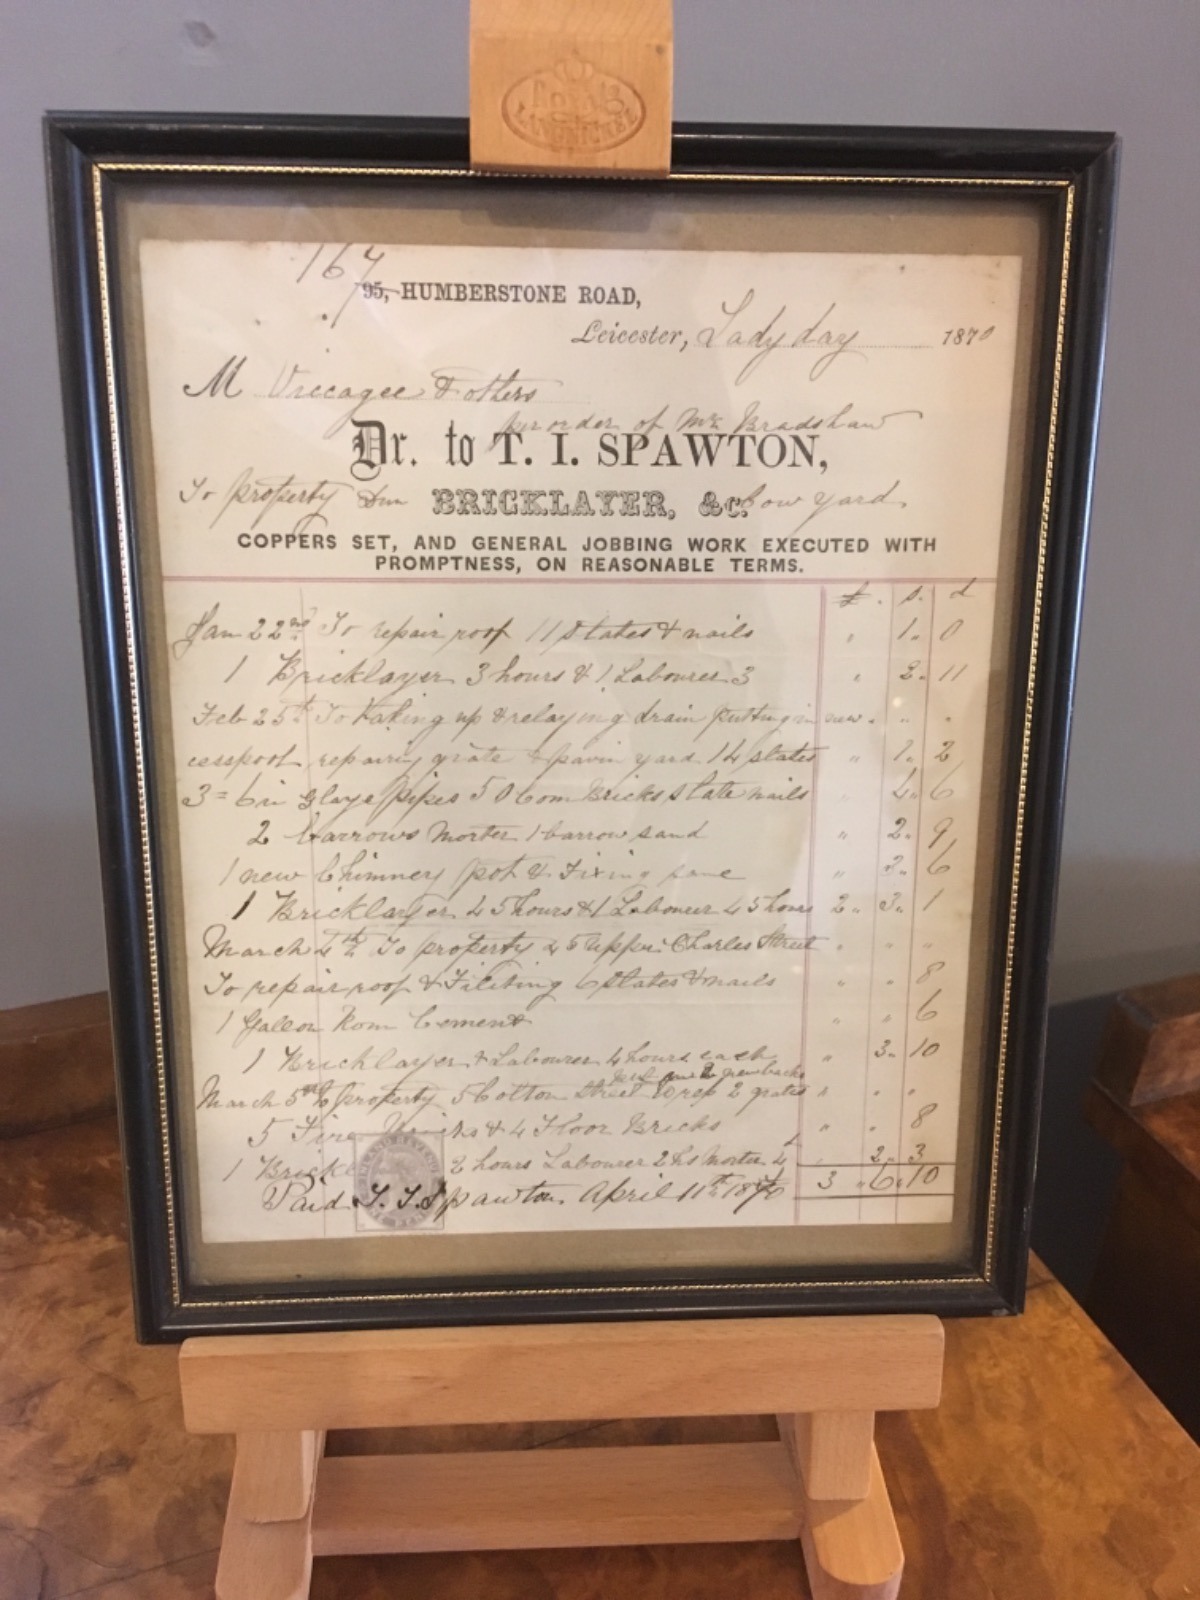 LANGNICKEL
167
95, HUMBERSTONE ROAD,
Leicester, Lady day 1870
M Viccagee & others
per order of Mr Bradshaw
Dr. to T. I. SPAWTON,
To property Sun BRICKLAYER, &c. Cow yard
COPPERS SET, AND GENERAL JOBBING WORK EXECUTED WITH
PROMPTNESS, ON REASONABLE TERMS.
£ . s. d
Jan 22nd To repair roof 11 slates & nails " 1. 0
1 Bricklayer 3 hours & 1 Labourer 3 " 2. 11
Feb 25th To taking up & relaying drain putting in new " " "
cesspool repairing grate & pavin yard 14 slates " 1. 2
3 = 6 in Glaye pipes 50 Com Bricks slate nails 4. 6
2 barrows Morter 1 barrow sand " 2. 9
1 new Chimney pot & Fixing same " 3. 6
1 Bricklayer 45 hours & 1 Labourer 45 hours 2. 3. 1
March 4th To property 45 upper Charles Street " " "
To repair roof & Filiting 6 slates & nails " " 8
1 Gallon Rom Cement " " 6
1 Bricklayer & Labourer 4 hours each " 3. 10
new backs
March 5th property 5 Cotton Street To rep 2 grates " " "
5 Fire Bricks & 4 Floor Bricks " " 8
1 Brickl 2 hours Labourer 2 hs Morter 4 2. 3
Paid T. I. Spawton. April 11th 1870 3 " 6. 10